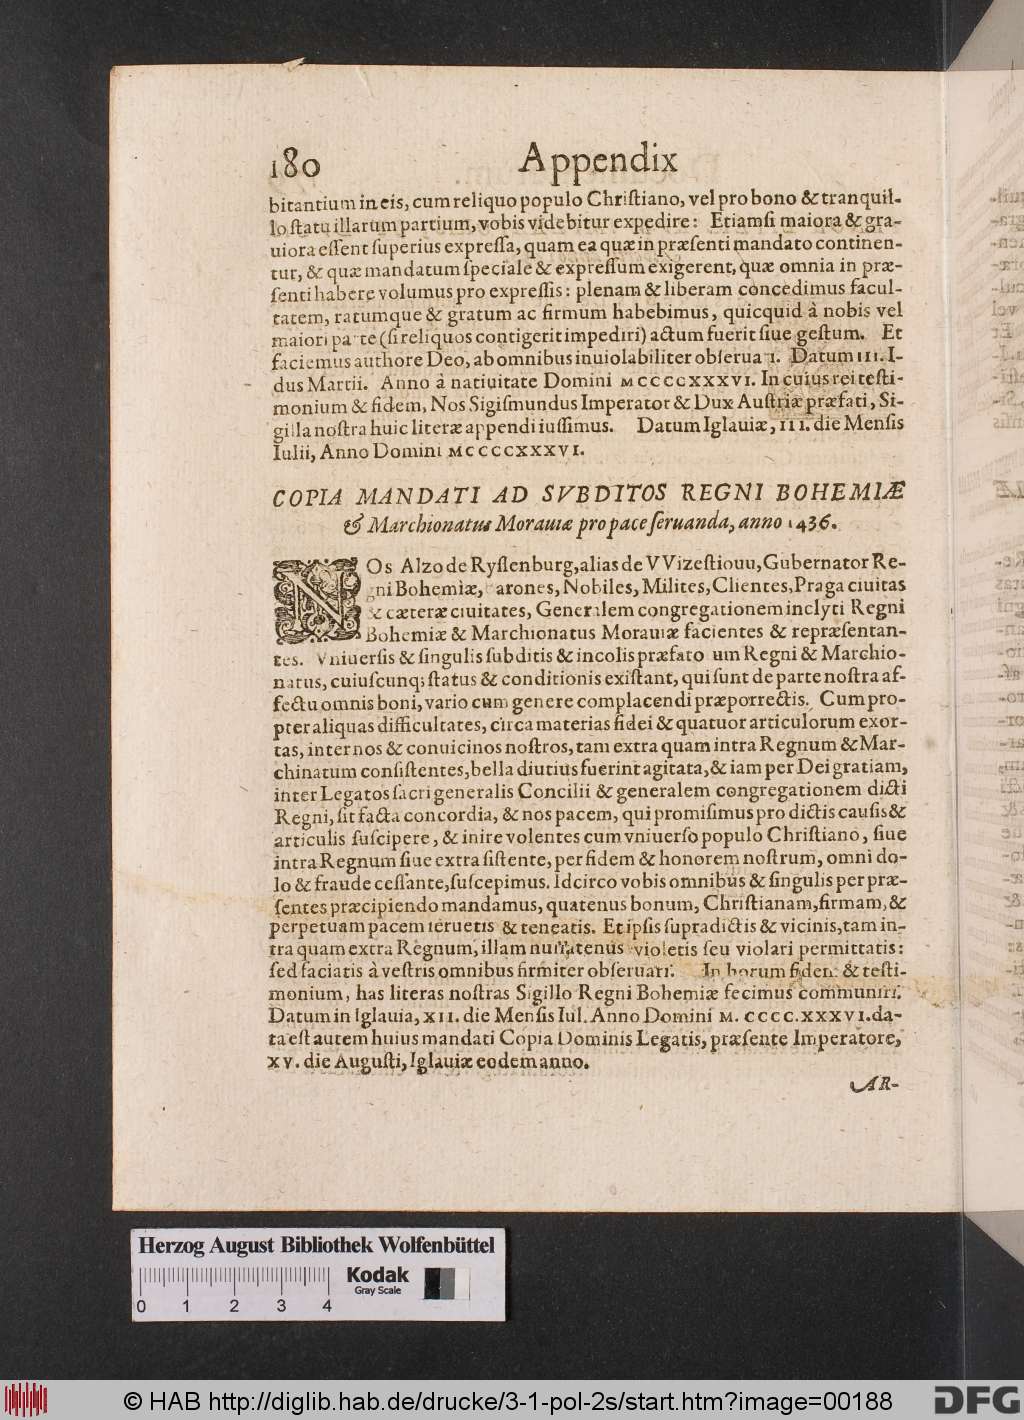 180 Appendix
bitantium in eis, cum reliquo populo Chriſtiano, vel pro bono & tranquil-
lo ſtatu illarum partium, vobis videbitur expedire: Etiamſi maiora & gra-
uiora eſſent ſuperius expreſſa, quam ea quæ in præſenti mandato continen-
tur, & quæ mandatum ſpeciale & expreſſum exigerent, quæ omnia in præ-
ſenti habere volumus pro expreſſis: plenam & liberam concedimus facul-
tatem, ratumque & gratum ac firmum habebimus, quicquid à nobis vel
maiori parte (ſi reliquos contigerit impediri) actum fuerit ſiue geſtum. Et
faciemus authore Deo, ab omnibus inuiolabiliter obſeruari. Datum III. I-
dus Martii. Anno à natiuitate Domini MCCCCXXXVI. In cuius rei teſti-
monium & fidem, Nos Sigiſmundus Imperator & Dux Auſtriæ præfati, Si-
gilla noſtra huic literæ appendi iuſſimus. Datum Iglauiæ, III. die Menſis
Iulii, Anno Domini MCCCCXXXVI.
COPIA MANDATI AD SVBDITOS REGNI BOHEMIÆ
& Marchionatus Morauiæ pro pace ſeruanda, anno 1436.
NOs Alzo de Ryſlenburg, alias de VVizeſtiouu, Gubernator Re-
gni Bohemiæ, arones, Nobiles, Milites, Clientes, Praga ciuitas
& cæteræ ciuitates, Generalem congregationem inclyti Regni
Bohemiæ & Marchionatus Morauiæ facientes & repræſentan-
tes. Vniuerſis & ſingulis ſubditis & incolis præfato um Regni & Marchio-
natus, cuiuſcunq; ſtatus & conditionis exiſtant, qui ſunt de parte noſtra af-
fectu omnis boni, vario cum genere complacendi præporrectis. Cum pro-
pter aliquas difficultates, circa materias fidei & quatuor articulorum exor-
tas, inter nos & conuicinos noſtros, tam extra quam intra Regnum & Mar-
chinatum conſiſtentes, bella diutius fuerint agitata, & iam per Dei gratiam,
inter Legatos ſacri generalis Concilii & generalem congregationem dicti
Regni, ſit facta concordia, & nos pacem, qui promiſimus pro dictis cauſis &
articulis ſuſcipere, & inire volentes cum vniuerſo populo Chriſtiano, ſiue
intra Regnum ſiue extra ſiſtente, per fidem & honorem noſtrum, omni do-
lo & fraude ceſſante, ſuſcepimus. Idcirco vobis omnibus & ſingulis per præ-
ſentes præcipiendo mandamus, quatenus bonum, Chriſtianam, firmam, &
perpetuam pacem ſeruetis & teneatis. Et ipſis ſupradictis & vicinis, tam in-
tra quam extra Regnum, illam nullatenus violetis ſeu violari permittatis:
ſed faciatis à veſtris omnibus firmiter obſeruari. In horum fidem & teſti-
monium, has literas noſtras Sigillo Regni Bohemiæ fecimus communiri.
Datum in Iglauia, XII. die Menſis Iul. Anno Domini M. CCCC.XXXVI. da-
ta eſt autem huius mandati Copia Dominis Legatis, præſente Imperatore,
XV. die Auguſti, Iglauiæ eodem anno.
AR-
Herzog August Bibliothek Wolfenbüttel
Kodak
Gray Scale
0 1 2 3 4
© HAB http://diglib.hab.de/drucke/3-1-pol-2s/start.htm?image=00188
DFG